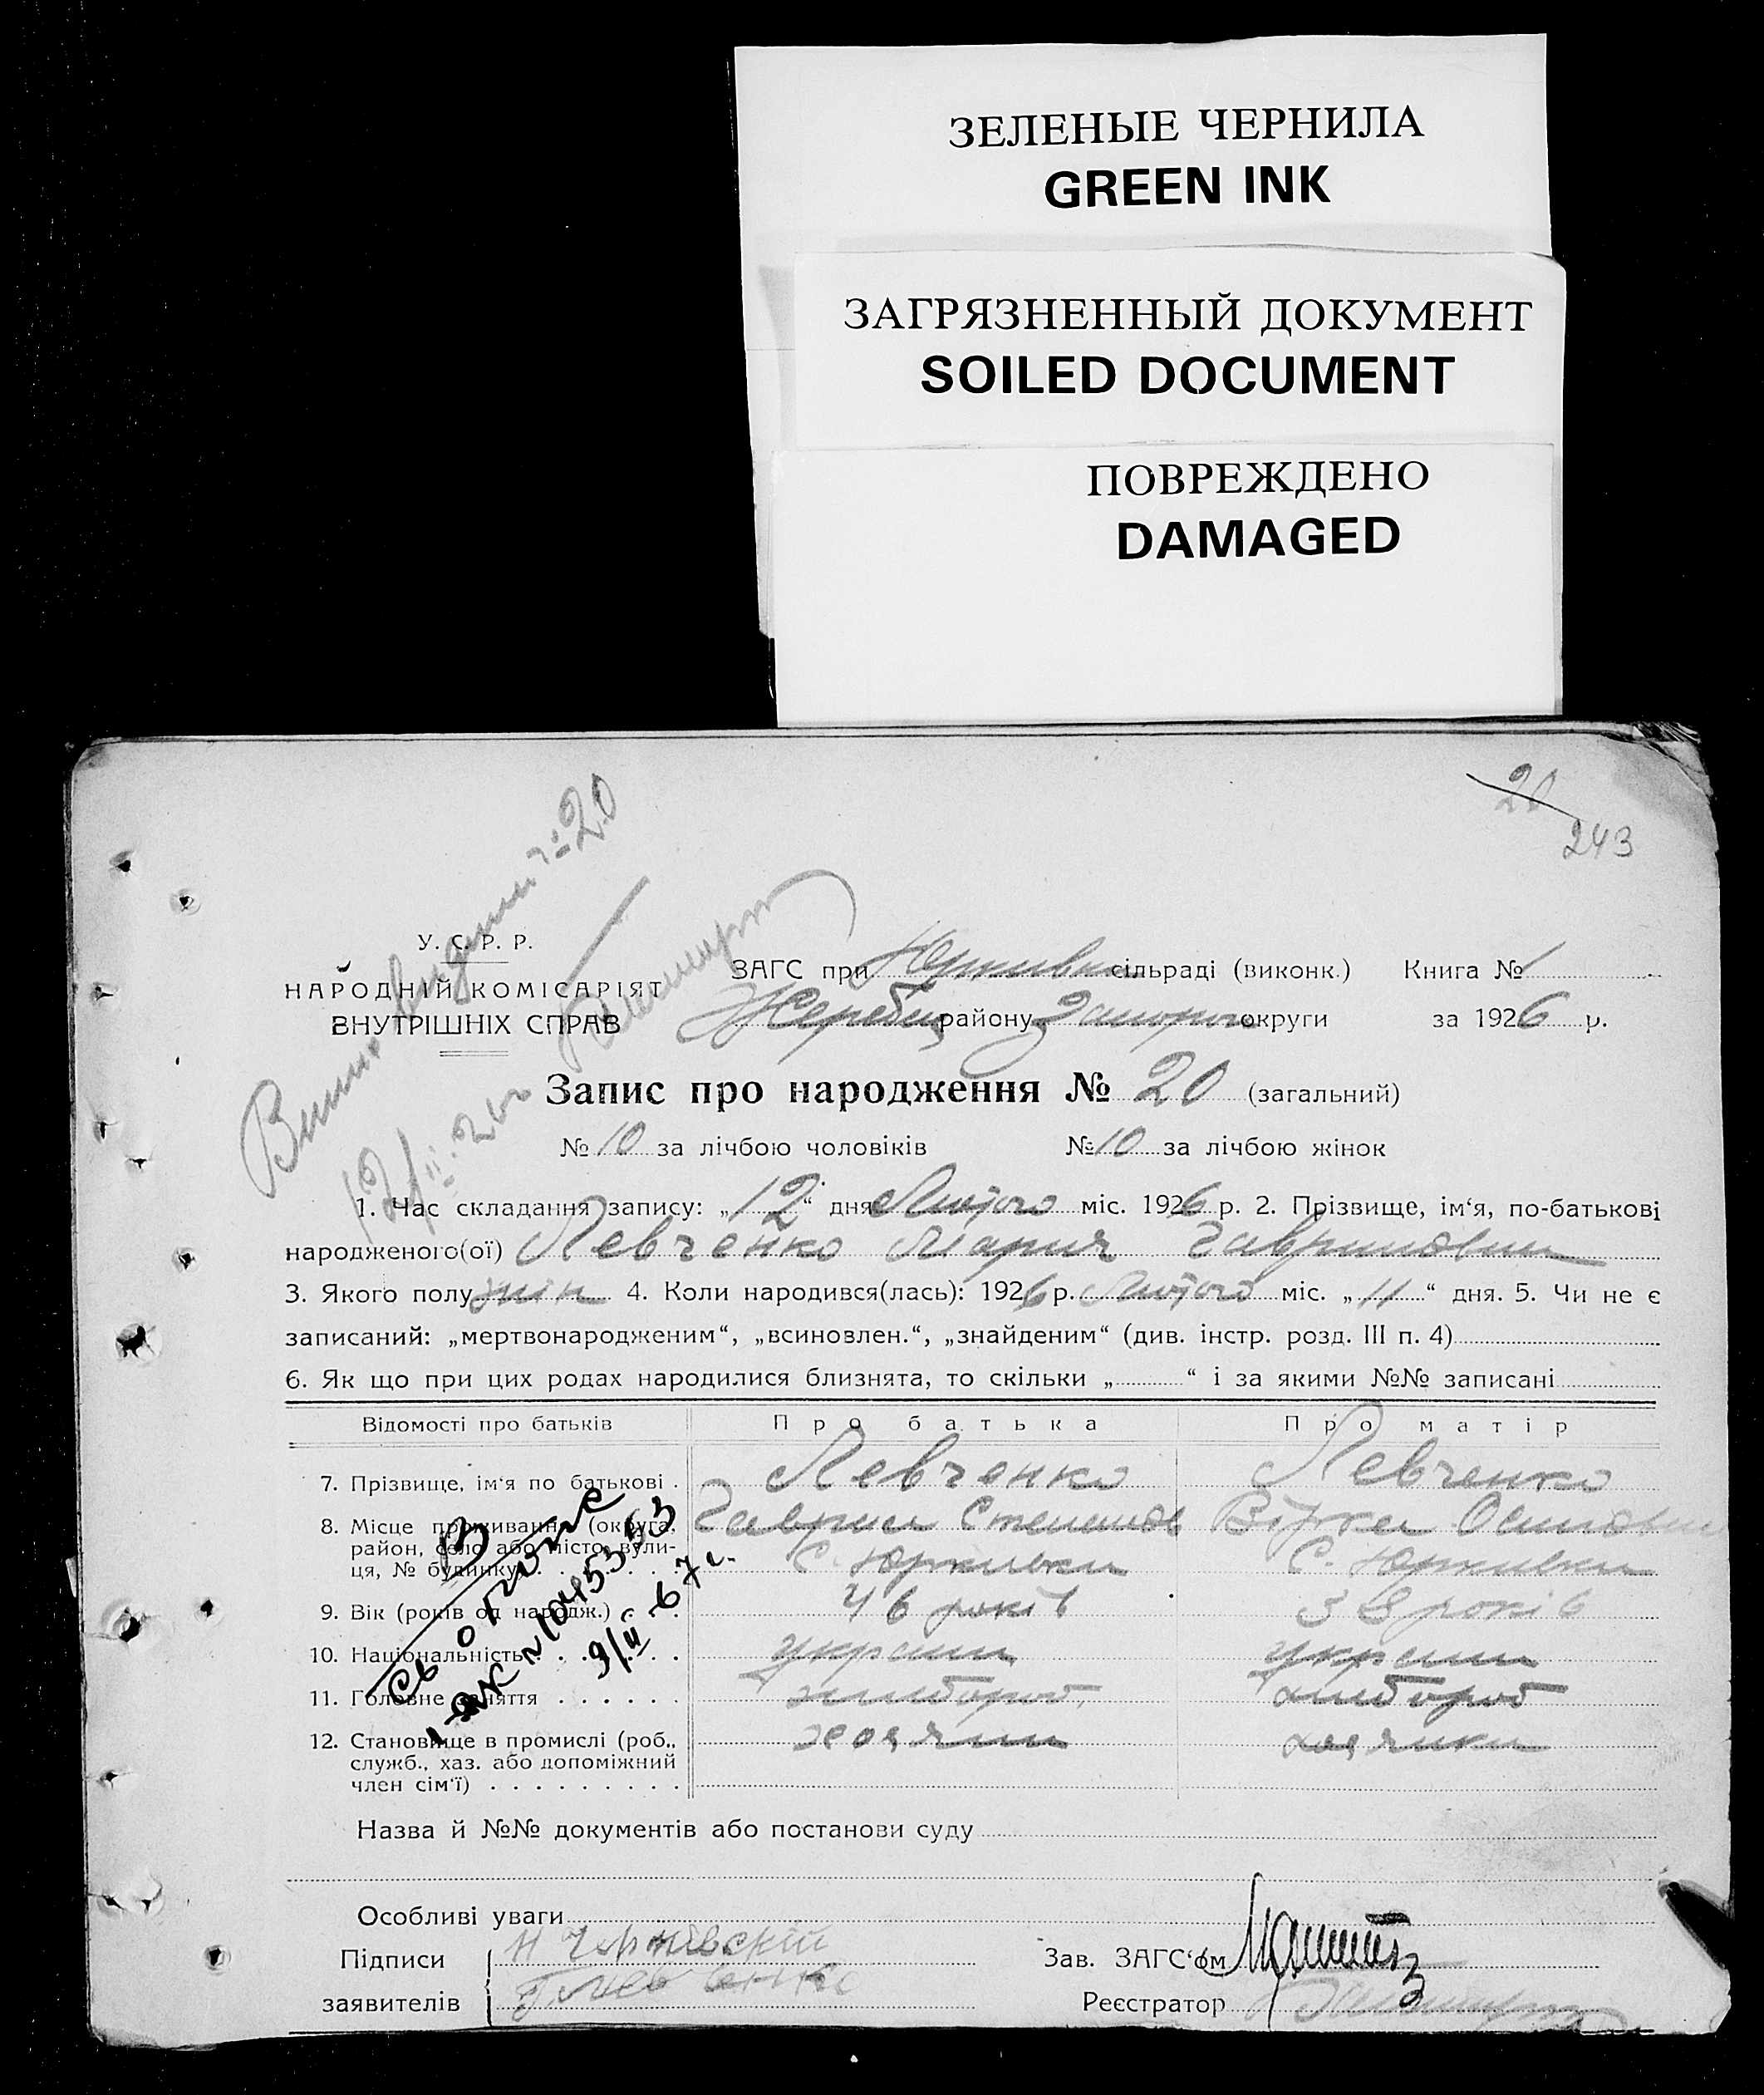 ЗЕЛЕНЫЕ ЧЕРНИЛА
GREEN INK
ЗАГРЯЗНЕННЫЙ ДОКУМЕНТ
SOILED DOCUMENT
ПОВРЕЖДЕНО
DAMAGED
20
243
№ 20
У. С. Р. Р.
НАРОДНІЙ КОМІСАРІЯТ
ВНУТРІШНІХ СПРАВ
ЗАГС при Юркивки сільраді (виконк.) Книга № 1
Жеребец району округи за 1926 р.
Запис про народження № 20 (загальний)
№ 10 за лічбою чоловіків № 10 за лічбою жінок
1. Час складання запису: „12“ дня Лютого міс. 1926 р. 2. Прізвище, ім‘я, по-батькові
народженого(ої) Левченко Мария
3. Якого полу жін 4. Коли народився(лась): 1926 р. Лютого міс. „11“ дня. 5. Чи не є
записаний: „мертвонародженим“, „всиновлен.“, „знайденим“ (див. інстр. розд. III п. 4)
6. Як що при цих родах народилися близнята, то скільки „ “ і за якими №№ записані
Відомості про батьків Про батька Про матір
7. Прізвище, ім‘я по батькові . Левченко Левченко
8. Місце проживання (округа, Гаврил Степанов
район, село або місто, вули-
ця, № будинку) С. Юркивки С. Юркивки
9. Вік (років од народж.) . . . 46 років 38 років
10. Національність . . . . . . украин украин
11. Головне заняття . . . . . . хлибороб хлибороб
12. Становище в промислі (роб., хозяин хозяйка
служб., хаз. або допоміжний
член сім‘ї) . . . . . . . . .
Назва й №№ документів або постанови суду
Особливі уваги
Підписи
заявителів
Зав. ЗАГС‘ом
Реєстратор